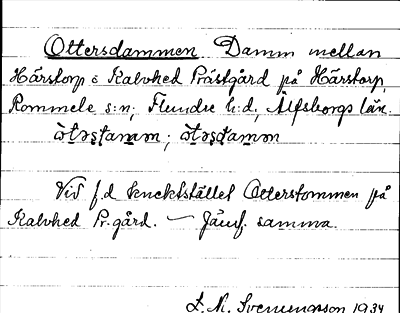 Ottersdammen Damm mellan
Härstorp o Kalvhed Prästgård på Härstorp,
Rommele s:n; Flundre h:d, Älfsborgs län.
òtəsṭamən; òtəṣdamən
Vid f.d knektstället Otterstommen på
Kalvhed Pr.gård. — Jämf. samma.
L. M. Svenungsson 1934